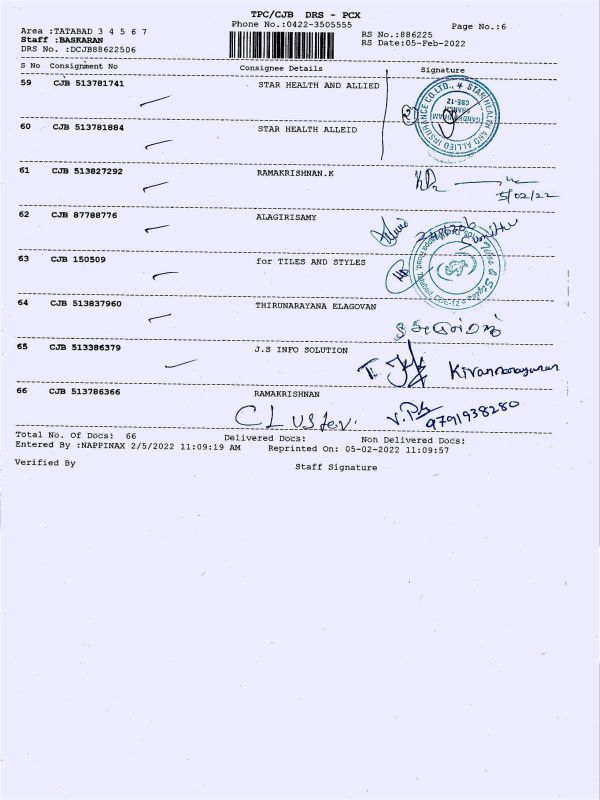 TPC/CJB DRS - PCX
Area :TATABAD 3 4 5 6 7 Phone No.:0422-3505555 Page No.:6
Staff :BASKARAN RS No.:886225
DRS No. :DCJB88622506 RS Date:05-Feb-2022
S No Consignment No Consignee Details Signature
59 CJB 513781741 STAR HEALTH AND ALLIED
60 CJB 513781884 STAR HEALTH ALLEID
61 CJB 513827292 RAMAKRISHNAN.K
5/02/22
62 CJB 87788776 ALAGIRISAMY
63 CJB 150509 for TILES AND STYLES
64 CJB 513837960 THIRUNARAYANA ELAGOVAN
65 CJB 513386379 J.S INFO SOLUTION
66 CJB 513786366 RAMAKRISHNAN
9791938280
Total No. Of Docs: 66 Delivered Docs: Non Delivered Docs:
Entered By :NAPPINAX 2/5/2022 11:09:19 AM Reprinted On: 05-02-2022 11:09:57
Verified By Staff Signature